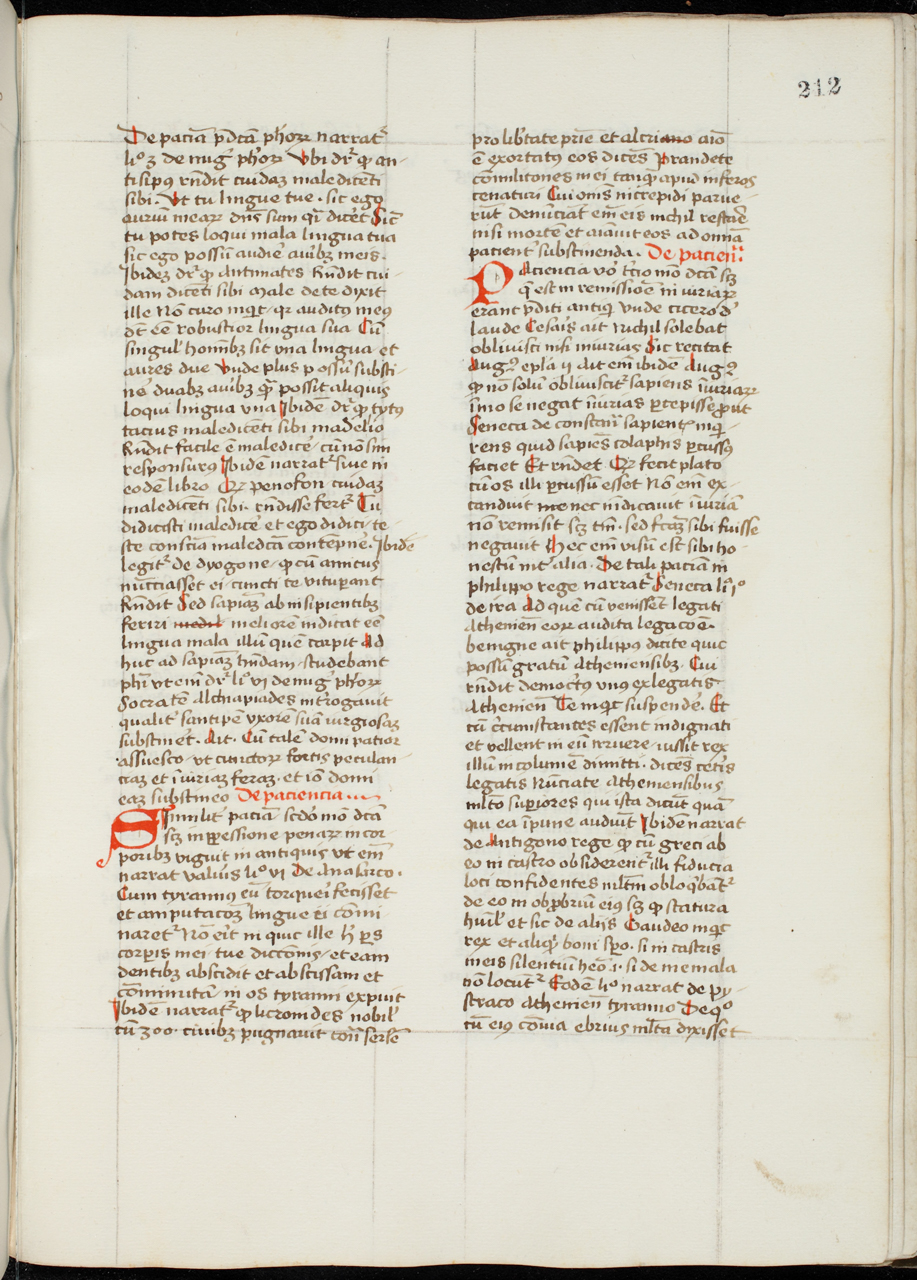 212
De paciā p̄dcā ph̄oꝝ narratᷣ
li° 3 de nugꝭ ph̄oꝝ Vbi drᷣ ꝙ an-
tisipꝰ rn̄dit cuidaꝫ maledicēti
sibi. Vt tu lingue tue. sic ego
auriū mearꝝ dn̄s sum qꝛ dicēt Sic̄
tu potes loqui mala lingua tua
sic ego possū audir̄e auribꝫ meis.
Ibideꝫ drᷣ ꝙ Antimates Rn̄dit cui-
dam dicēti sibi male de te dixit
ille Nō curo inqͥt. qꝛ auditꝰ meꝰ
dꝫ eē robustior lingua sua Cū
singulꝭ homībꝫ sit vna lingua. et
aures due Vnde plus possū susti-
nēˀ duabꝫ auribꝫ qꝫ possit aliquis
loqui lingua vna Ibidē drᷣ ꝙ tytꝰ
tacius maledicēti sibi madelio
Rn̄dit facile ē maledicēˀ cū nō sim
responsurꝰ Ibidē narratᷣ siue in
eodē libro Qꝫ penofon cuidaꝫ
maledicēti sibi. rn̄disse fertᷣ Tu
didicisti maledicēˀ et ego didici te-
ste conscīa maledcā contēpnēˀ. Ibidē
legitᷣ de dyogone. ꝙ cū amicus
nūcciasset ei. cuncti te vituperant
Rn̄dit Sed sapīaꝫ ab insipientibꝫ
feriri meliorē indicat eē
lingua mala illū quē carpit Ad
huc ad sapīaꝫ tn̄dam. studebant
ph̄i vt em̄ drᷣ li° VI de nugꝭ ph̄oꝝ
Socratē Alchiapiades int̄rogauit
qualitˀ santipē vxorē suā iurgiosaꝫ
substinetˀ. Ait. Cū talē domi patior
assuesco. vt curatorꝝ fortis petulan-
ciaꝫ et īuriaꝫ feraꝫ. et iō domi
eaꝫ substineo De paciencia
Similitˀ paciā scdo mō dcā
scꝫ in ꝑpessione penarꝝ in cor-
poribꝫ viguit in antiquis vt em̄
narrat valius li° VI De Anaxarco.
Cum tyrannus eū torqueri fecisset
et amputacoꝫ lingue ei comi
naretᷣ Nō erit inquit ille h̄ ps
corpis mei. tue diccōnis. et eam
dentibꝫ abscidit et abscissam et
cōminutā. in os tyranni expuit
Ibidē narratᷣ ꝙ licromdes nobilꝭ
cū 300. ciuibꝫ pugnauit cont̄ sersē
pro lib̄tate prīe et aiō
ē exortatꝰ eos dicēs Prandete
cōmilitones mei tanqꝫ apud inferos
cenaturi Cui oms intrepidi parue-
rūt denūciat em̄ eis nichil restarē
nisi mortē et aīauit eos ad omnia
patientˀ substinenda. De pacien
Paciencia vo t̄cio mō dcā scꝫ
q̄ est in remissionē iniuriarꝝ
erant p̄diti antiqͥ vnde cicero dˀ
laude Cesaīs ait Nichil solebat
obliuisci nisi iniurias Sic recitat
Augꝰ epl̄a ii Ait em̄ ibidē Augꝰ
ꝙ nō solū obliuiscitᷣ sapiens iīuriarꝝ
īmo se negat iīurias ꝑcepisse prout
Seneca de constan̄ sapientꝭ inqͥ-
rens quid sapiēs colaphis ꝑcussꝰ
faciet Et rn̄det Qꝫ fecit plato
cū os illi ꝑcussū esset Nō em̄ ex-
canduit nec uindicauit īuriā
nō remisit scꝫ tm̄. sed fcāꝫ sibi fuisse
negauit Hec em̄ visū est sibi ho-
nestū intˀ alia. De tali paciā in
philippo rege narratᷣ Seneca li° j°
de ira Ad quē cū venissēt legati
Athenien̄ eorꝝ audita legacōe.
benigne ait philippꝰ dicite quic
possū gratū Atheniensibꝫ. Cui
rn̄dit democˀtꝰ vnꝰ ex legatis
Athenien̄ Te inqͥt suspendeˀ. Et
cū cͥcumstantes essent indignati
et vellent in eū irruere. iussit rex
illū incolumē dimitti. dicēs cetˀis
legatis Nūciate Atheniensibus
mlto supiores qui ista dicūt quā
qui ea īpune audiūt Ibidē narrat
de Antigono rege ꝙ cū greci ab
eo in castro obsiderentᷣ illi fiducia
loci confidentes mltm obloqͣbātᷣ
de eo in obp̄briū eiꝰ scꝫ ꝙ statura
hūilꝭ et sic de aliis Gaudeo inqͥt
rex et aliqͥ boni spo. si in castris
meis silentiū heo. j. si de me mala
nō locūtᷣ Eodē li° narrat de py-
straco Athenien̄ tyranno De q°
cū eiꝰ cōuiua ebrius mlta dyxisset